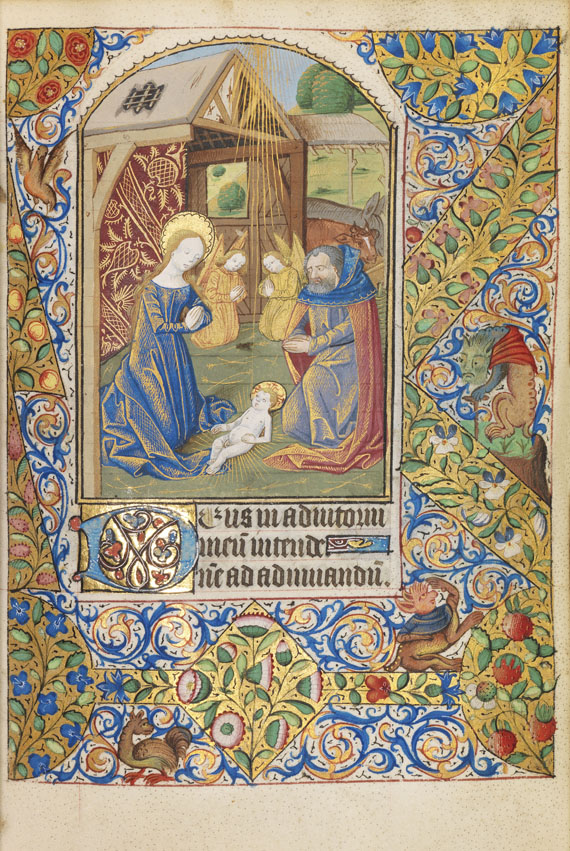 Deus in adiutoriu
meū intende
Dñe ad adiuuandū.